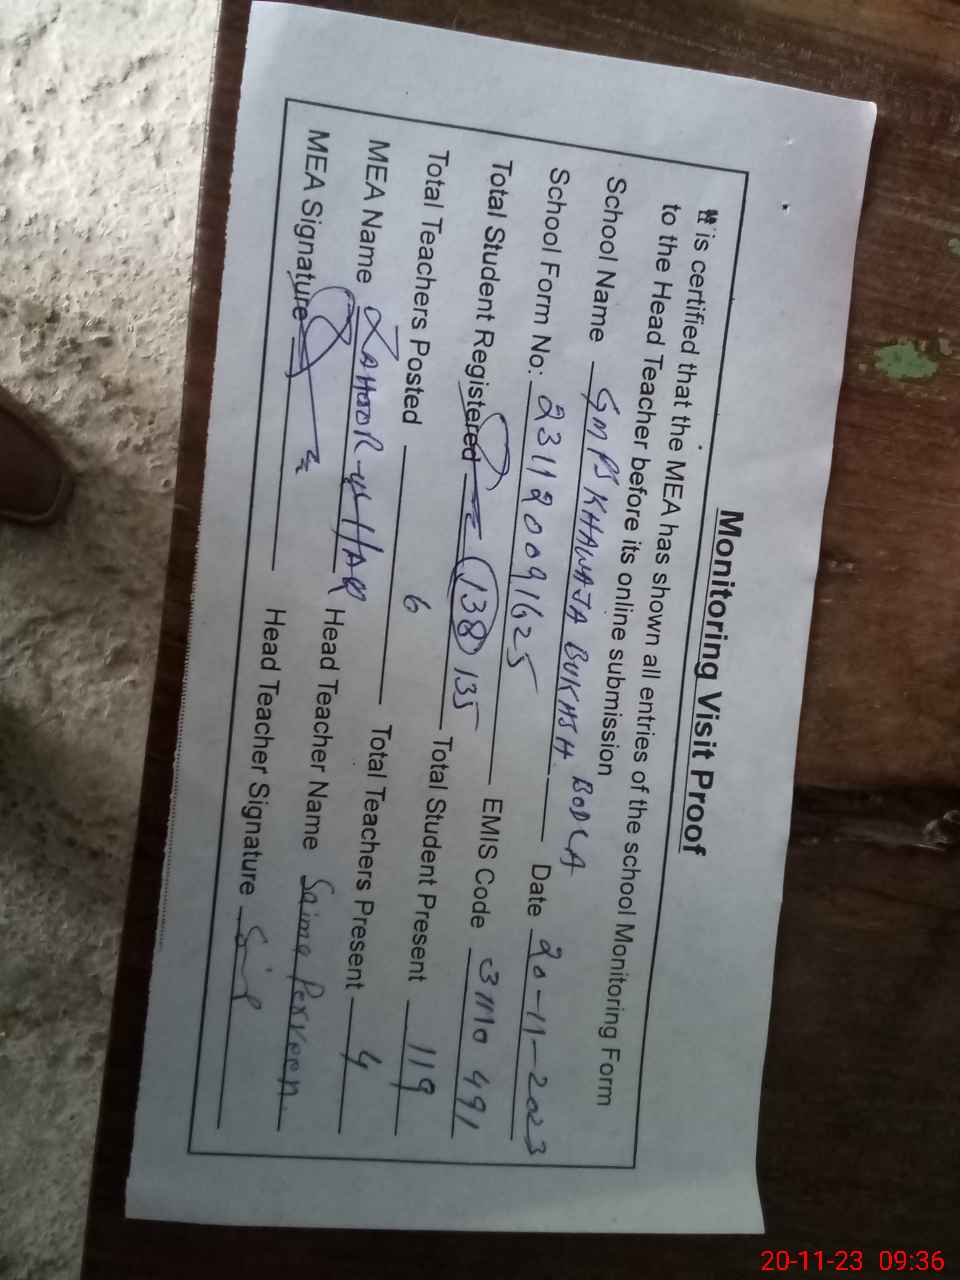 Monitoring Visit Proof
It is certified that the MEA has shown all entries of the school Monitoring Form
to the Head Teacher before its online submission
School Name GMPS KHAWAJA BUKHSH BODLA
School Form No: 231120091625 Date 20-11-2023
Total Student Registered 138 135 EMIS Code 31110491
Total Teachers Posted 6 Total Student Present 119
MEA Name ZAHOOR-ul-HAQ Total Teachers Present 4
MEA Signature Head Teacher Name Saima Perveen.
Head Teacher Signature
20-11-23 09:36